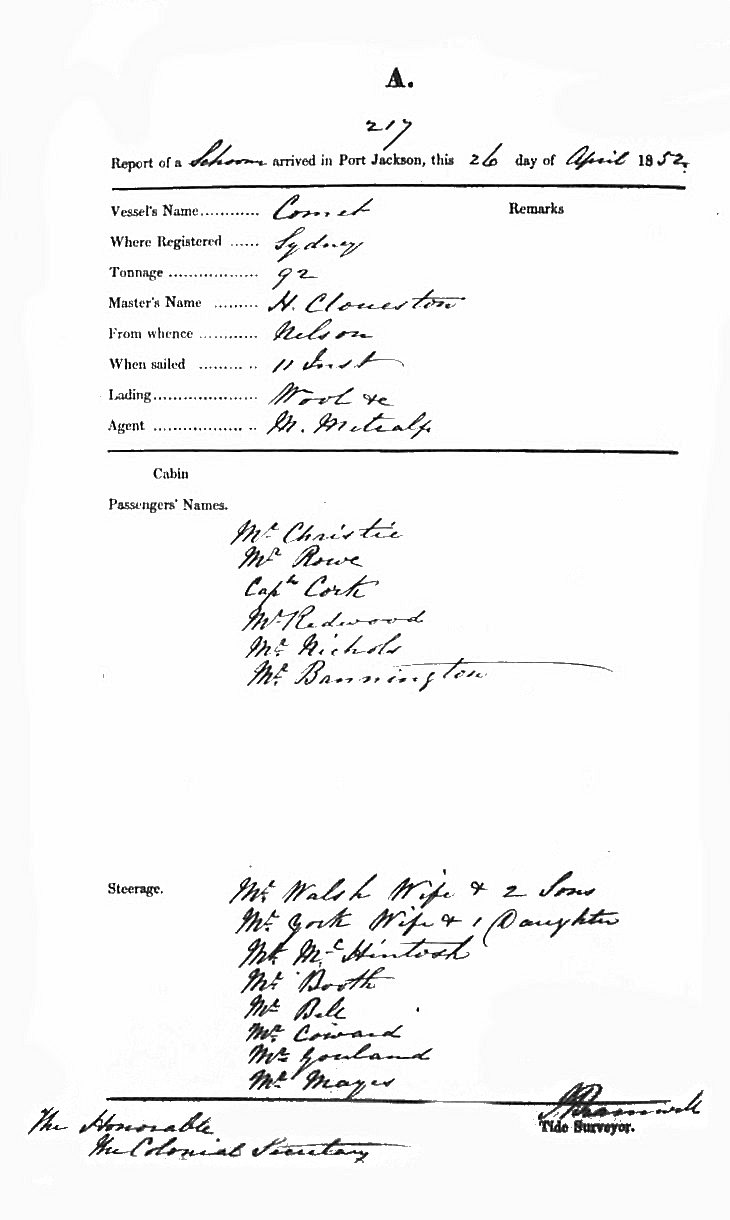 A.
217
Report of a Schooner arrived in Port Jackson, this 26 day of April 1852.
Vessel's Name............ Comet Remarks
Where Registered ...... Sydney
Tonnage .................. 92
Master's Name ......... H. Cloueston
From whence ............ Nelson
When sailed ......... .. 11 Inst
Lading..................... Wool &c
Agent .................. .. M. Metcalfe
Cabin
Passengers' Names.
Mr. Christie
Mr. Rowe
Captn Cork
Mr Redwood
Mr. Nichols
Mr. Bannington
Steerage. Mr. Walsh Wife & 2 Sons
Mr. York Wife & 1 Daughter
Mr. McHintosh
Mr. Booth
Mr Bell
Mr. Coward
Mr. Gouland
Mr. Mayes
Bramwell
The Honorable Tide Surveyor.
The Colonial Secretary